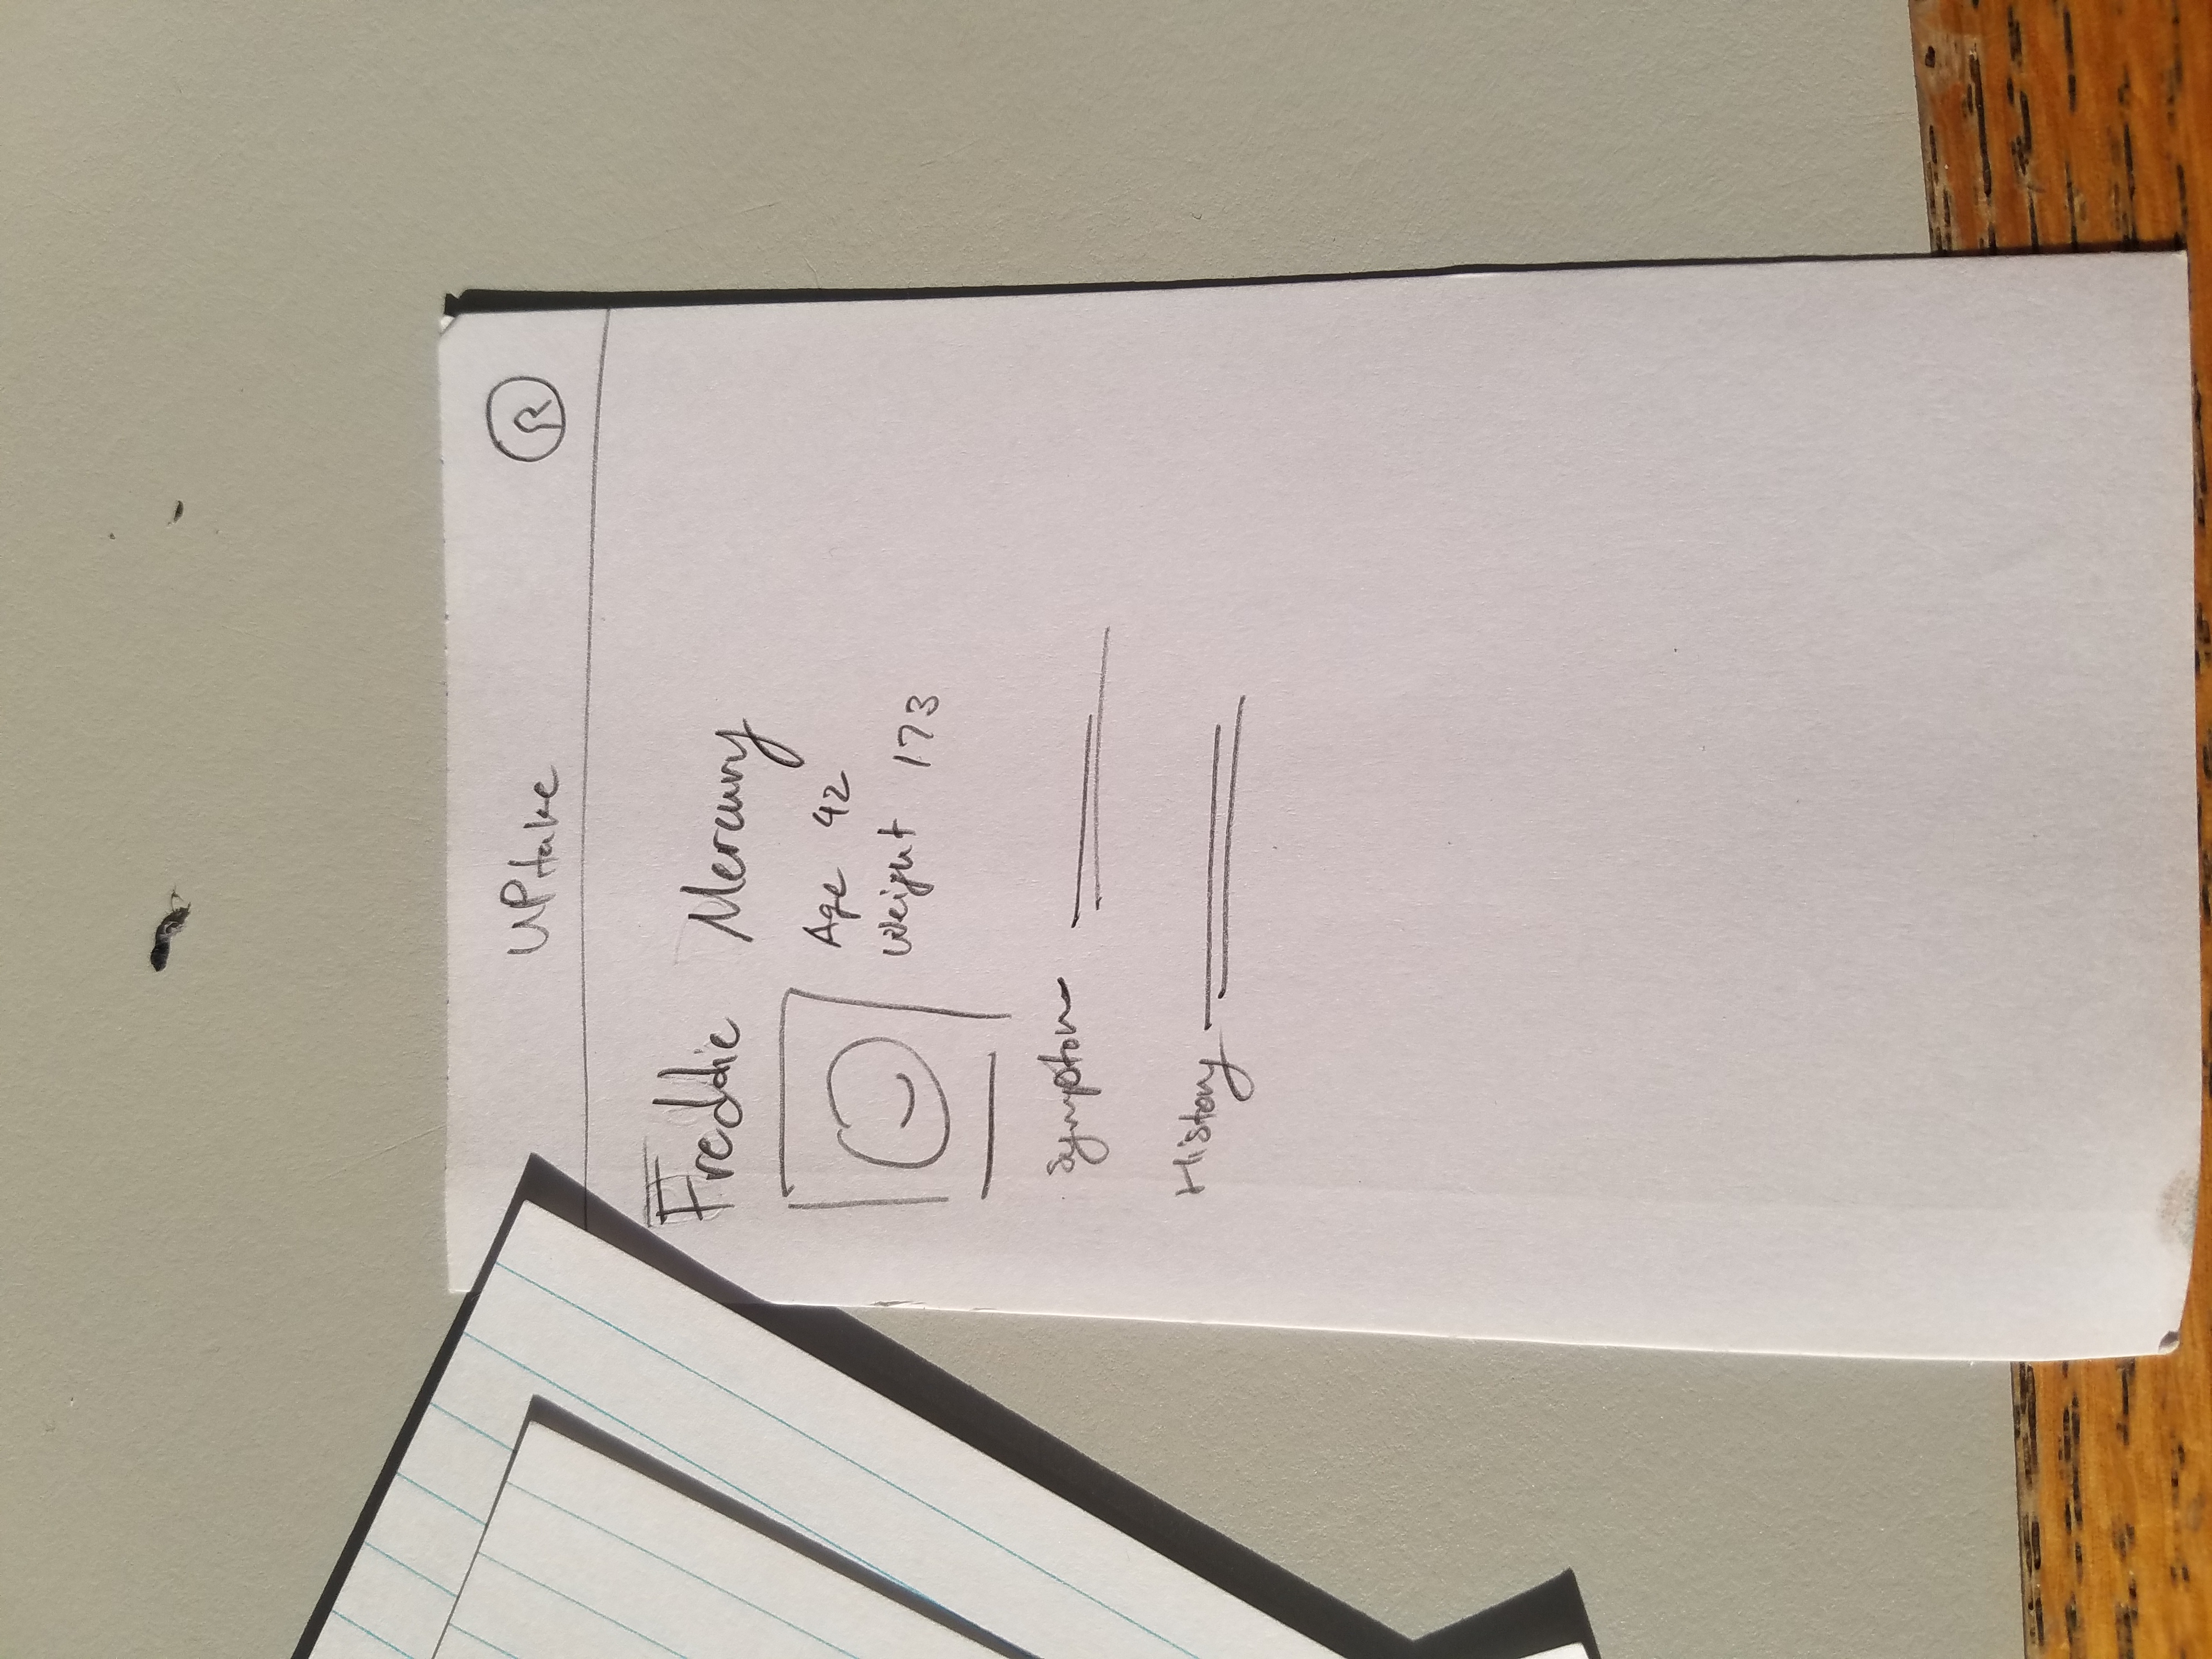 UPtake
Freddie Mercury
Age 42
Weight 173
Symptom
History